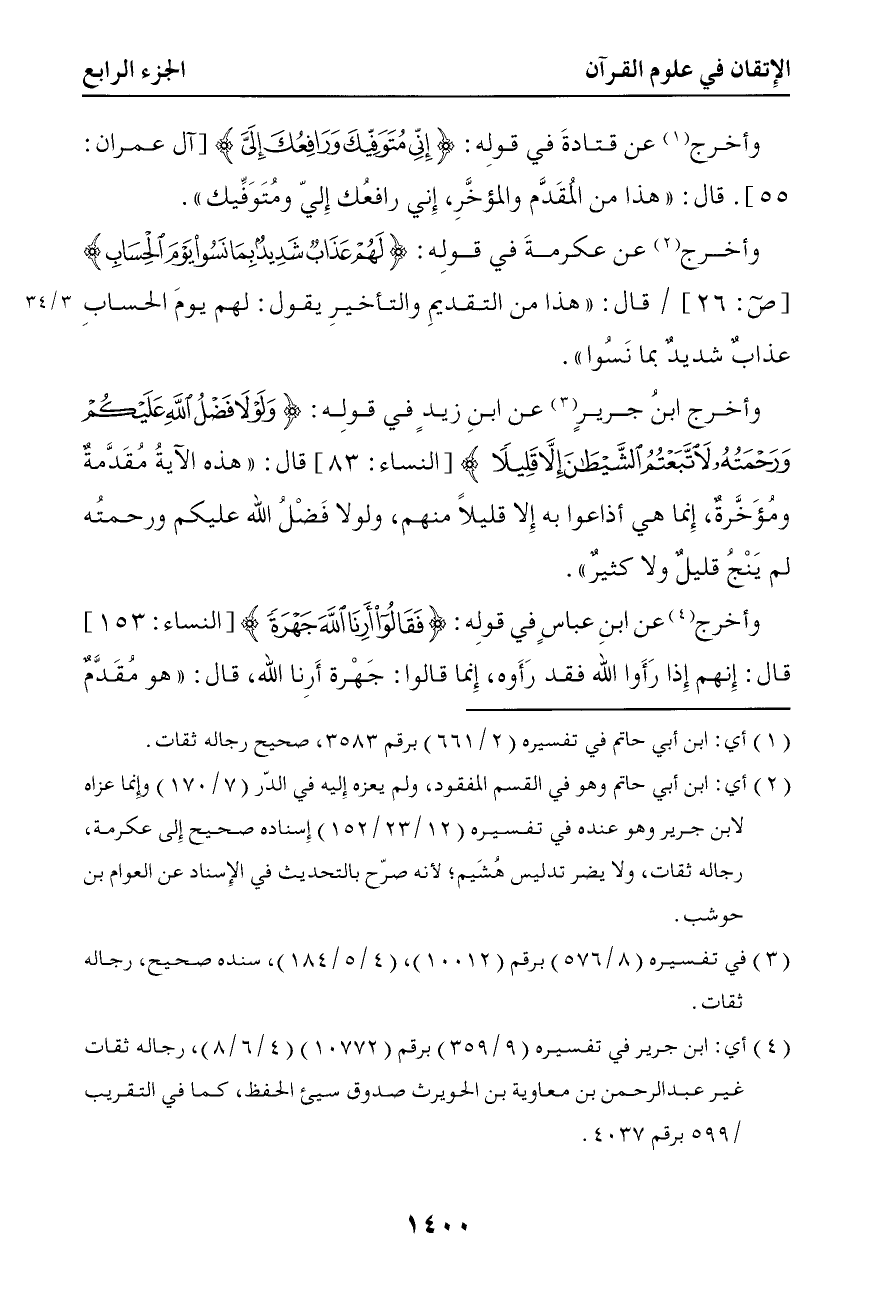 الإتقان في علوم القرآن
الجزء الرابع
وأخرج(١) عن قتادةَ في قوله: ﴿إِنِّي مُتَوَفِّيكَ وَرَافِعُكَ إِلَىَّ﴾ [آل عمران:
٥٥]. قال: «هذا من المُقدَّم والمؤخَّرِ، إني رافعُك إليّ ومُتَوَفِّيك».
وأخرج(٢) عن عكرمةَ في قوله: ﴿لَهُمْ عَذَابٌ شَدِيدٌ بِمَا نَسُوا۟ يَوْمَ ٱلْحِسَابِ﴾
[صٓ: ٢٦] / قال: «هذا من التقديمِ والتأخيرِ يقول: لهم يومَ الحسابِ
٣٤/٣
عذابٌ شديدٌ بما نَسُوا».
وأخرج ابنُ جريرٍ(٣) عن ابنِ زيدٍ في قوله: ﴿وَلَوْلَا فَضْلُ ٱللَّهِ عَلَيْكُمْ
وَرَحْمَتُهُۥ لَٱتَّبَعْتُمُ ٱلشَّيْطَٰنَ إِلَّا قَلِيلًا﴾ [النساء: ٨٣] قال: «هذه الآيةُ مُقَدَّمةٌ
ومُؤَخَّرةٌ، إنما هي أذاعوا به إلا قليلاً منهم، ولولا فَضْلُ الله عليكم ورحمتُه
لم يَنْجُ قليلٌ ولا كثيرٌ».
وأخرج(٤) عن ابنِ عباسٍ في قوله: ﴿فَقَالُوٓا۟ أَرِنَا ٱللَّهَ جَهْرَةً﴾ [النساء: ١٥٣]
قال: إنهم إذا رَأَوا الله فقد رَأَوه، إنما قالوا: جَهْرة أرنا الله، قال: «هو مُقَدَّمٌ
(١) أي: ابن أبي حاتم في تفسيره (٦٦١/٢) برقم ٣٥٨٣، صحيح رجاله ثقات.
(٢) أي: ابن أبي حاتم وهو في القسم المفقود، ولم يعزه إليه في الدّر (١٧٠/٧) وإنما عزاه
لابن جرير وهو عنده في تفسيره (١٥٢/٢٣/١٢) إسناده صحيح إلى عكرمة،
رجاله ثقات، ولا يضر تدليس هُشَيم؛ لأنه صرّح بالتحديث في الإسناد عن العوام بن
حوشب.
(٣) في تفسيره (٥٧٦/٨) برقم (١٠٠١٢)، (١٨٤/٥/٤)، سنده صحيح، رجاله
ثقات.
(٤) أي: ابن جرير في تفسيره (٣٥٩/٩) برقم (١٠٧٧٢) (٨/٦/٤)، رجاله ثقات
غير عبدالرحمن بن معاوية بن الحويرث صدوق سيئ الحفظ، كما في التقريب
/٥٩٩ برقم ٤٠٣٧.
١٤٠٠